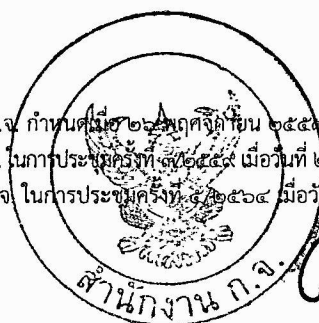 .จ. กำหนดเมื่อ ๒๖ พฤศจิกายน ๒๕๕
. ในการประชุมครั้งที่ ๗/๒๕๕๙ เมื่อวันที่ ๒
จ. ในการประชุมครั้งที่ ๕/๒๕๖๔ เมื่อวั
สำนักงาน ก.จ.